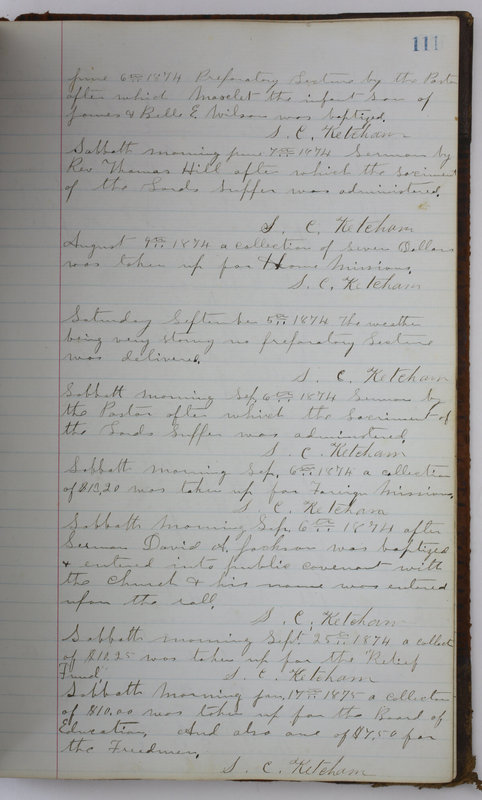 111
June 6th 1874 Preparatory Lecture by the Pastor
after which the infant son of
James & Belle E. Wilson was baptized.
S. C. Ketcham
Sabbath morning June 7th 1874 Sermon by
Rev Thomas Hill after which the Sacrament
of the Lords Supper was administered.
S. C. Ketcham
August 9th 1874 a collection of Seven Dollars
was taken up for Home Missions.
S. C. Ketcham
Saturday September 5th 1874 The weather
being very stormy no preparatory Lecture
was delivered.
S. C. Ketcham
Sabbath morning Sep. 6th 1874 Sermon by
the Pastor after which the Sacriment of
the Lords Supper was administered.
S. C. Ketcham
Sabbath morning Sep. 6th 1874 a collection
of $13,20 was taken up for Foreign Missions.
S. C. Ketcham
Sabbath Morning Sep. 6th 1874 after
Sermon David A. Jackson was baptized
& entered into public covenant with
the Church & his name was entered
upon the roll.
S. C. Ketcham
Sabbath morning Sept. 25th 1874 a collect
of $11.25 was taken up for the "Relief
Fund."
S. C. Ketcham
Sabbath Morning Jan, 17th 1875 a collection
of $10.00 was taken up for the Board of
Education, And also one of $7,50 for
the Freedmen,
S. C. Ketcham